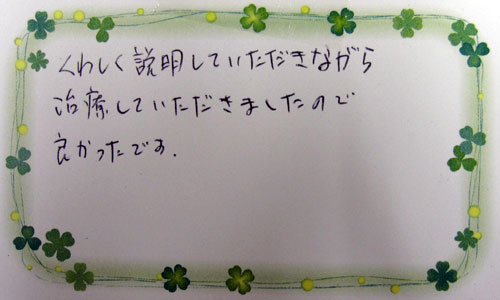 くわしく説明していただきながら
治療していただきましたので
良かったです.